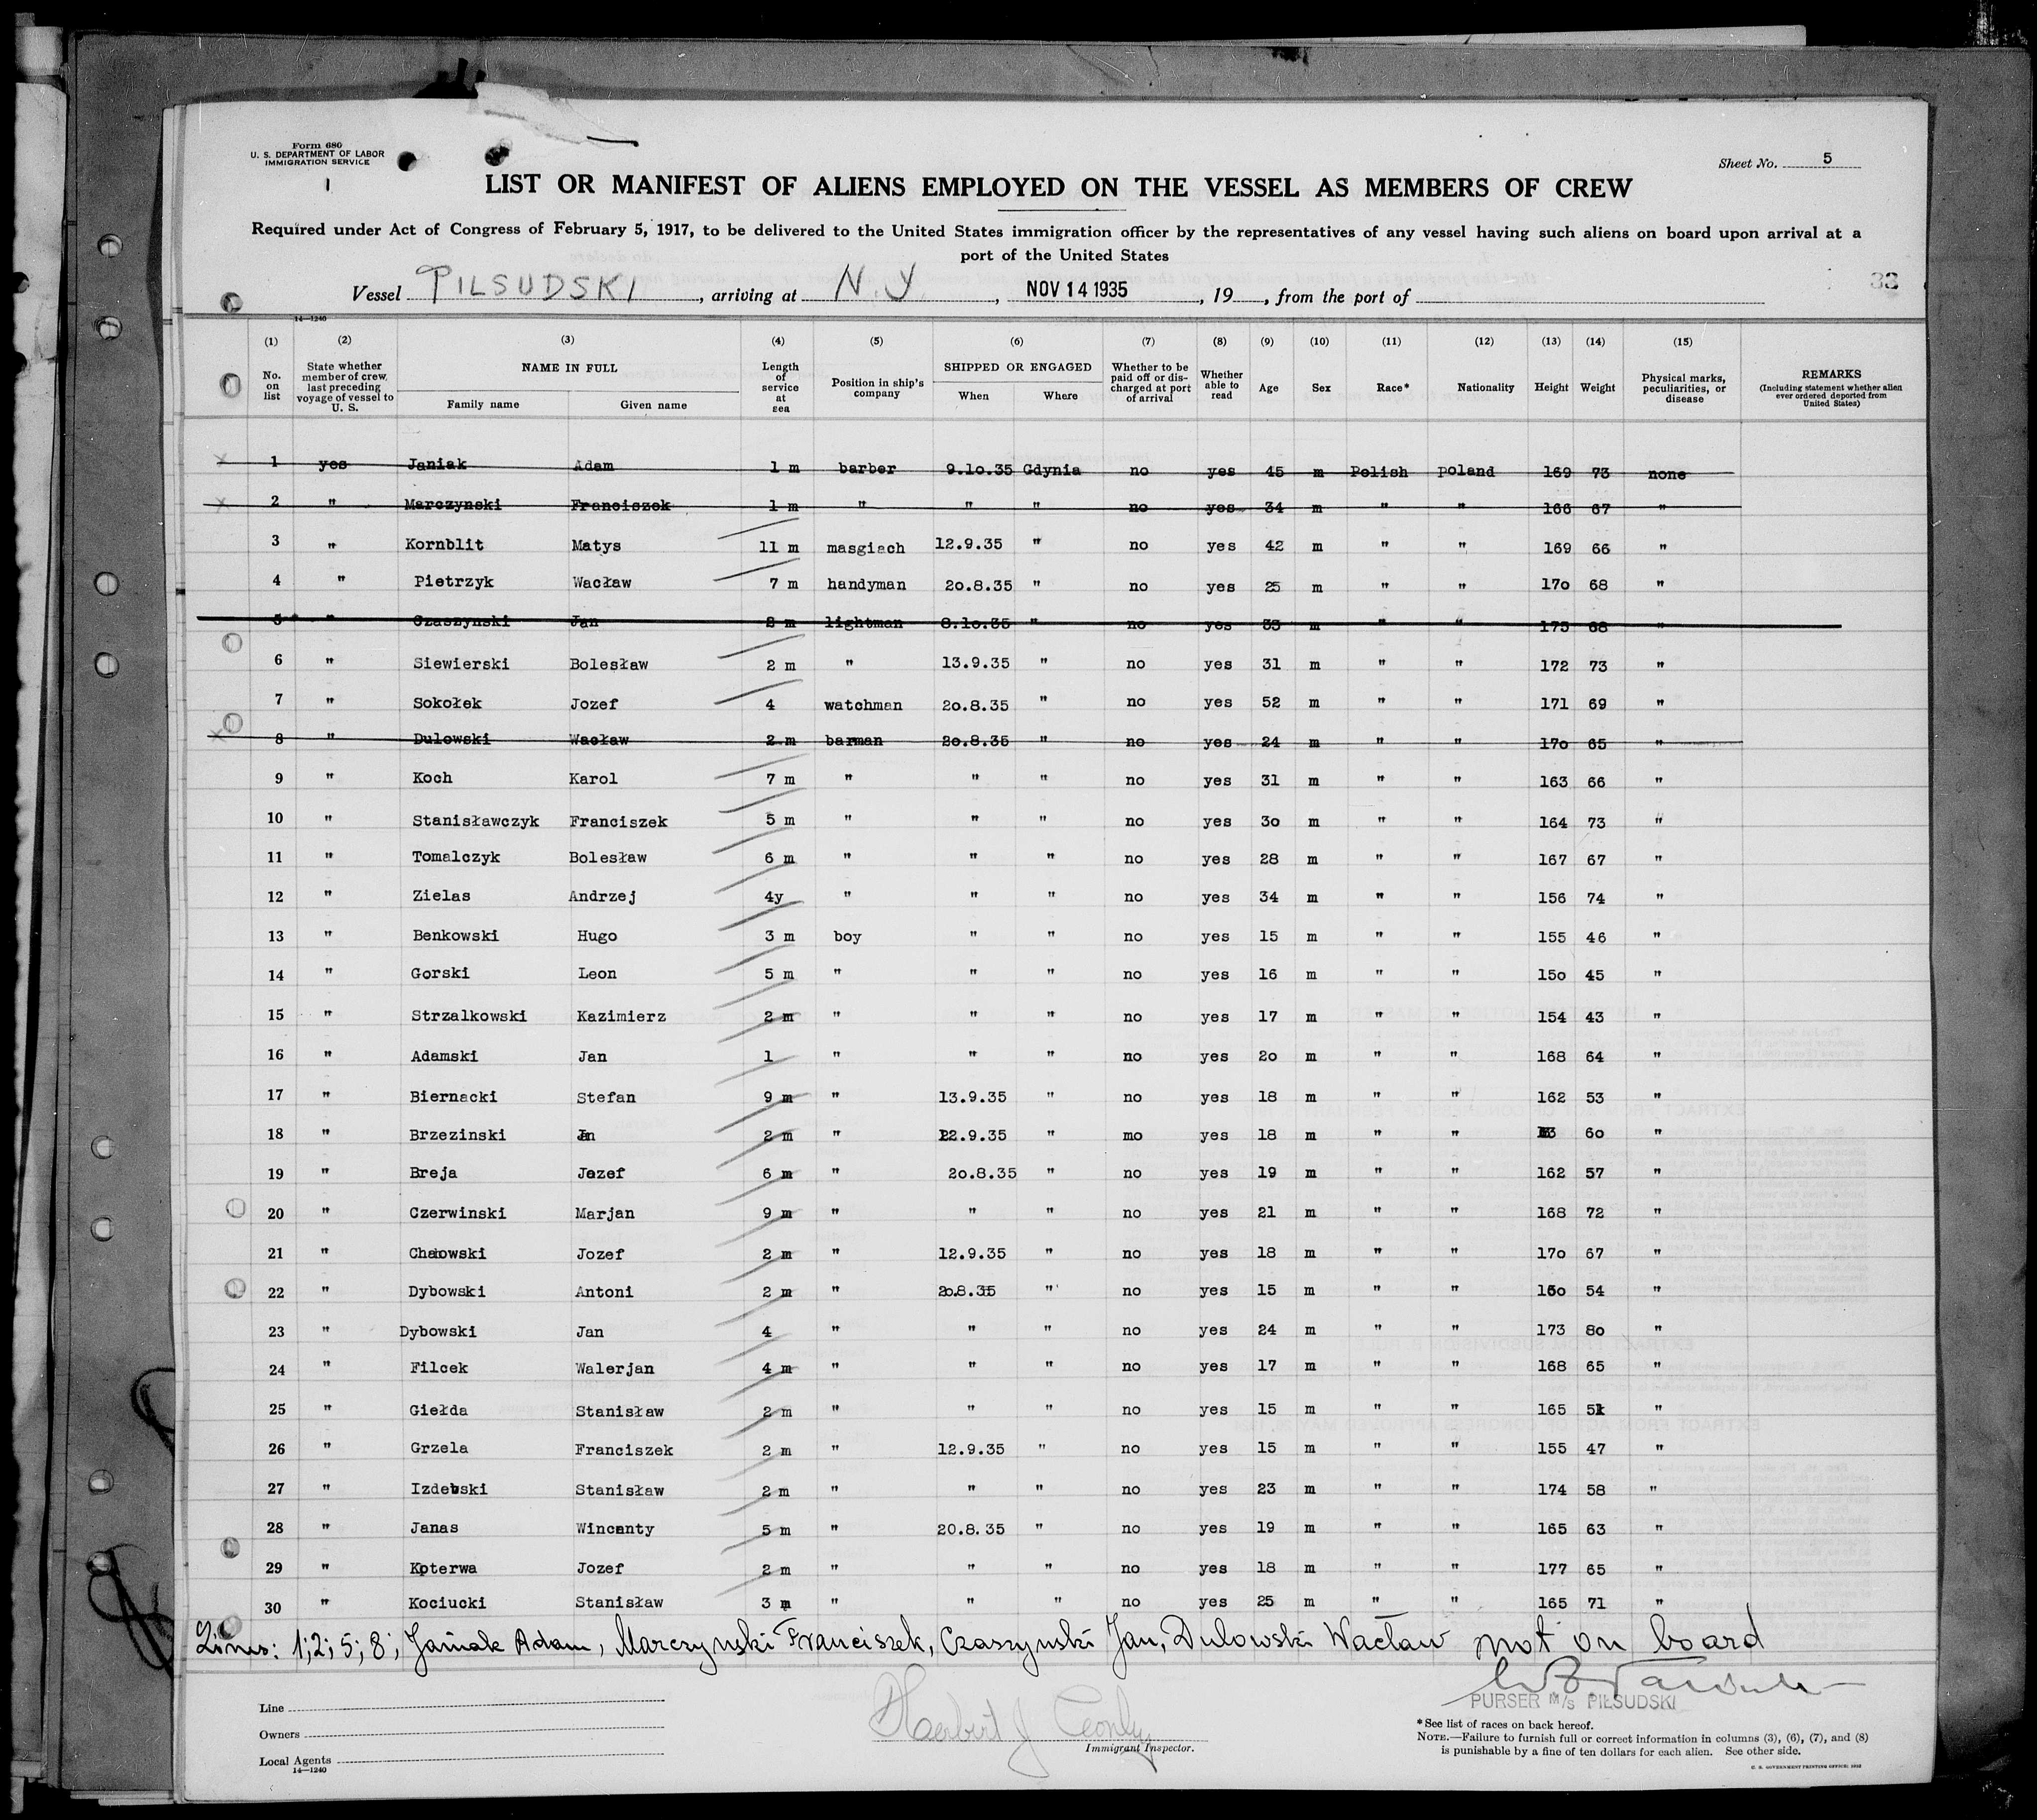 Form 680
U. S. DEPARTMENT OF LABOR
IMMIGRATION SERVICE
1
Sheet No. 5
LIST OR MANIFEST OF ALIENS EMPLOYED ON THE VESSEL AS MEMBERS OF CREW
Required under Act of Congress of February 5, 1917, to be delivered to the United States immigration officer by the representatives of any vessel having such aliens on board upon arrival at a
port of the United States
Vessel PILSUDSKI, arriving at N. Y., NOV 14 1935, 19, from the port of
14—1240
(1) (2) (3) (4) (5) (6) (7) (8) (9) (10) (11) (12) (13) (14) (15)
No. on list State whether member of crew, last preceding voyage of vessel to U. S. NAME IN FULL Family name Given name Length of service at sea Position in ship's company SHIPPED OR ENGAGED When Where Whether to be paid off or discharged at port of arrival Whether able to read Age Sex Race* Nationality Height Weight Physical marks, peculiarities, or disease REMARKS (Including statement whether alien ever ordered deported from United States)
1 yes Janiak Adam 1 m barber 9.10.35 Gdynia no yes 45 m Polish Poland 169 73 none
2 " Marczynski Franciszek 1 m " " " no yes 34 m " " 166 67 "
3 " Kornblit Matys 11 m masgiach 12.9.35 " no yes 42 m " " 169 66 "
4 " Pietrzyk Wacław 7 m handyman 20.8.35 " no yes 25 m " " 170 68 "
5 " Czaszynski Jan 2 m lightman 8.10.35 " no yes 33 m " " 175 68 "
6 " Siewierski Bolesław 2 m " 13.9.35 " no yes 31 m " " 172 73 "
7 " Sokołek Jozef 4 watchman 20.8.35 " no yes 52 m " " 171 69 "
8 " Dulowski Wacław 2 m barman 20.8.35 " no yes 24 m " " 170 65 "
9 " Koch Karol 7 m " " " no yes 31 m " " 163 66 "
10 " Stanisławczyk Franciszek 5 m " " " no yes 30 m " " 164 73 "
11 " Tomalczyk Bolesław 6 m " " " no yes 28 m " " 167 67 "
12 " Zielas Andrzej 4y " " " no yes 34 m " " 156 74 "
13 " Benkowski Hugo 3 m boy " " no yes 15 m " " 155 46 "
14 " Gorski Leon 5 m " " " no yes 16 m " " 150 45 "
15 " Strzalkowski Kazimierz 2 m " " " no yes 17 m " " 154 43 "
16 " Adamski Jan 1 " " " no yes 20 m " " 168 64 "
17 " Biernacki Stefan 9 m " 13.9.35 " no yes 18 m " " 162 53 "
18 " Brzezinski Jan 2 m " 12.9.35 " mo yes 18 m " " 60 "
19 " Breja Jozef 6 m " 20.8.35 " no yes 19 m " " 162 57 "
20 " Czerwinski Marjan 9 m " " " no yes 21 m " " 168 72 "
21 " Jozef 2 m " 12.9.35 " no yes 18 m " " 170 67 "
22 " Dybowski Antoni 2 m " 20.8.35 " no yes 15 m " " 54 "
23 " Dybowski Jan 4 " " " no yes 24 m " " 173 80 "
24 " Filcek Walerjan 4 m " " " no yes 17 m " " 168 65 "
25 " Giełda Stanisław 2 m " " " no yes 15 m " " 165 51 "
26 " Grzela Franciszek 2 m " 12.9.35 " no yes 15 m " " 155 47 "
27 " Izdebski Stanisław 2 m " " " no yes 23 m " " 174 58 "
28 " Janas Wincenty 5 m " 20.8.35 " no yes 19 m " " 165 63 "
29 " Koterwa Jozef 2 m " " " no yes 18 m " " 177 65 "
30 " Kociucki Stanisław 3 m " " " no yes 25 m " " 165 71 "
Lines: 1; 2; 5; 8; Janiak Adam, Marczynski Franciszek, Czaszynski Jan, Dulowski Wacław not on board
PURSER M/s PIŁSUDSKI
Line
Owners
Local Agents
14—1240
Herbert J
Immigrant Inspector.
*See list of races on back hereof.
NOTE.—Failure to furnish full or correct information in columns (3), (6), (7), and (8)
is punishable by a fine of ten dollars for each alien. See other side.
U. S. GOVERNMENT PRINTING OFFICE: 1932